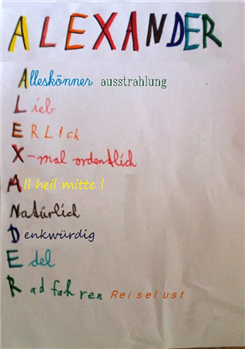 ALEXANDER
Alleskönner ausstrahlung
Lieb
ERLICH
X-mal ordentlich
All heil mitte !
Natürlich
Denkwürdig
Edel
Radfahren Reiselust